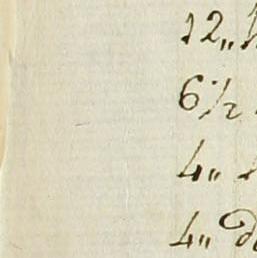 12„
6 1/2
4„
4„ d